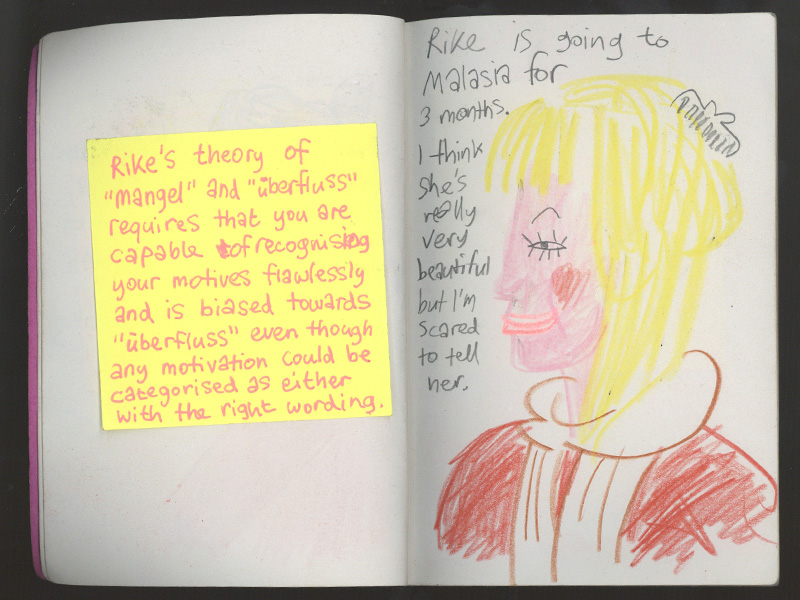 Rike's theory of
"mangel" and "überfluss"
requires that you are
capable of recognising
your motives flawlessly
and is biased towards
"überfluss" even though
any motivation could be
categorised as either
with the right wording.
Rike is going to
Malasia for
3 months.
I think
she's
really
very
beautiful
but I'm
scared
to tell
her.